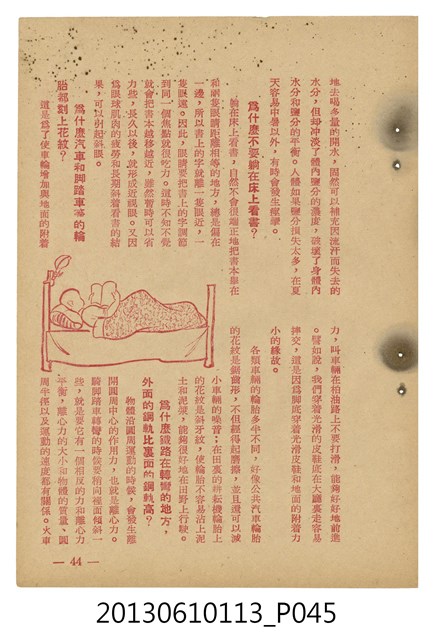 地去喝多量的開水，固然可以補充因流汗而失去的
水分，但却冲淡了體內鹽分的濃度，破壞了身體內
水分和鹽分的平衡。人體如果鹽分損失太多，在夏
天容易中暑以外，有時會發生痙攣。
爲什麽不要躺在床上看書？
躺在床上看書，自然不會很端正地把書本擧在
和兩隻眼睛距離相等的地方，總是偏在
一邊，所以書上的字就離一隻眼近，一
隻眼遠。因此，眼睛要把書上的字調節
到同一個焦點就很吃力。這時不知不覺
就會把書本越移越近，雖然暫時可以省
力些，長久以後，就形成近視眼。又因
爲眼球肌肉的疲勞和長期斜着看書的結
果，可以引起斜眼。
爲什麽汽車和脚踏車等的輪
胎都刻上花紋？
這是爲了使車輪增加與地面的附着
力，叫車輛在柏油路上不要打滑，能夠好好地前進
。譬如說，我們穿着光滑的皮鞋底在大廳裏走容易
摔交，這是因爲脚底穿着光滑皮鞋和地面的附着力
小的緣故。
各類車輛的輪胎多半不同，好像公共汽車輪胎
的花紋是鋸齒形，不但經得起磨擦，並且還可以減
小車輛的噪音；在田裏的耕耘機輪胎上
的花紋是斜牙紋，使輪胎不容易沾上泥
土和泥漿，能夠很好地在田野上行駛。
爲什麽鐵路在轉彎的地方，
外面的鋼軌比裏面的鋼軌高？
物體沿圓周運動的時候，會發生離
開圓周中心的作用力，也就是離心力。
騎脚踏車轉彎的時候要稍向裡面傾斜一
些，就是要它有一個相反的力和離心力
平衡，離心力的大小和物體的質量、圓
周半徑以及運動的速度都有關係。火車
— 44 —
20130610113_P045